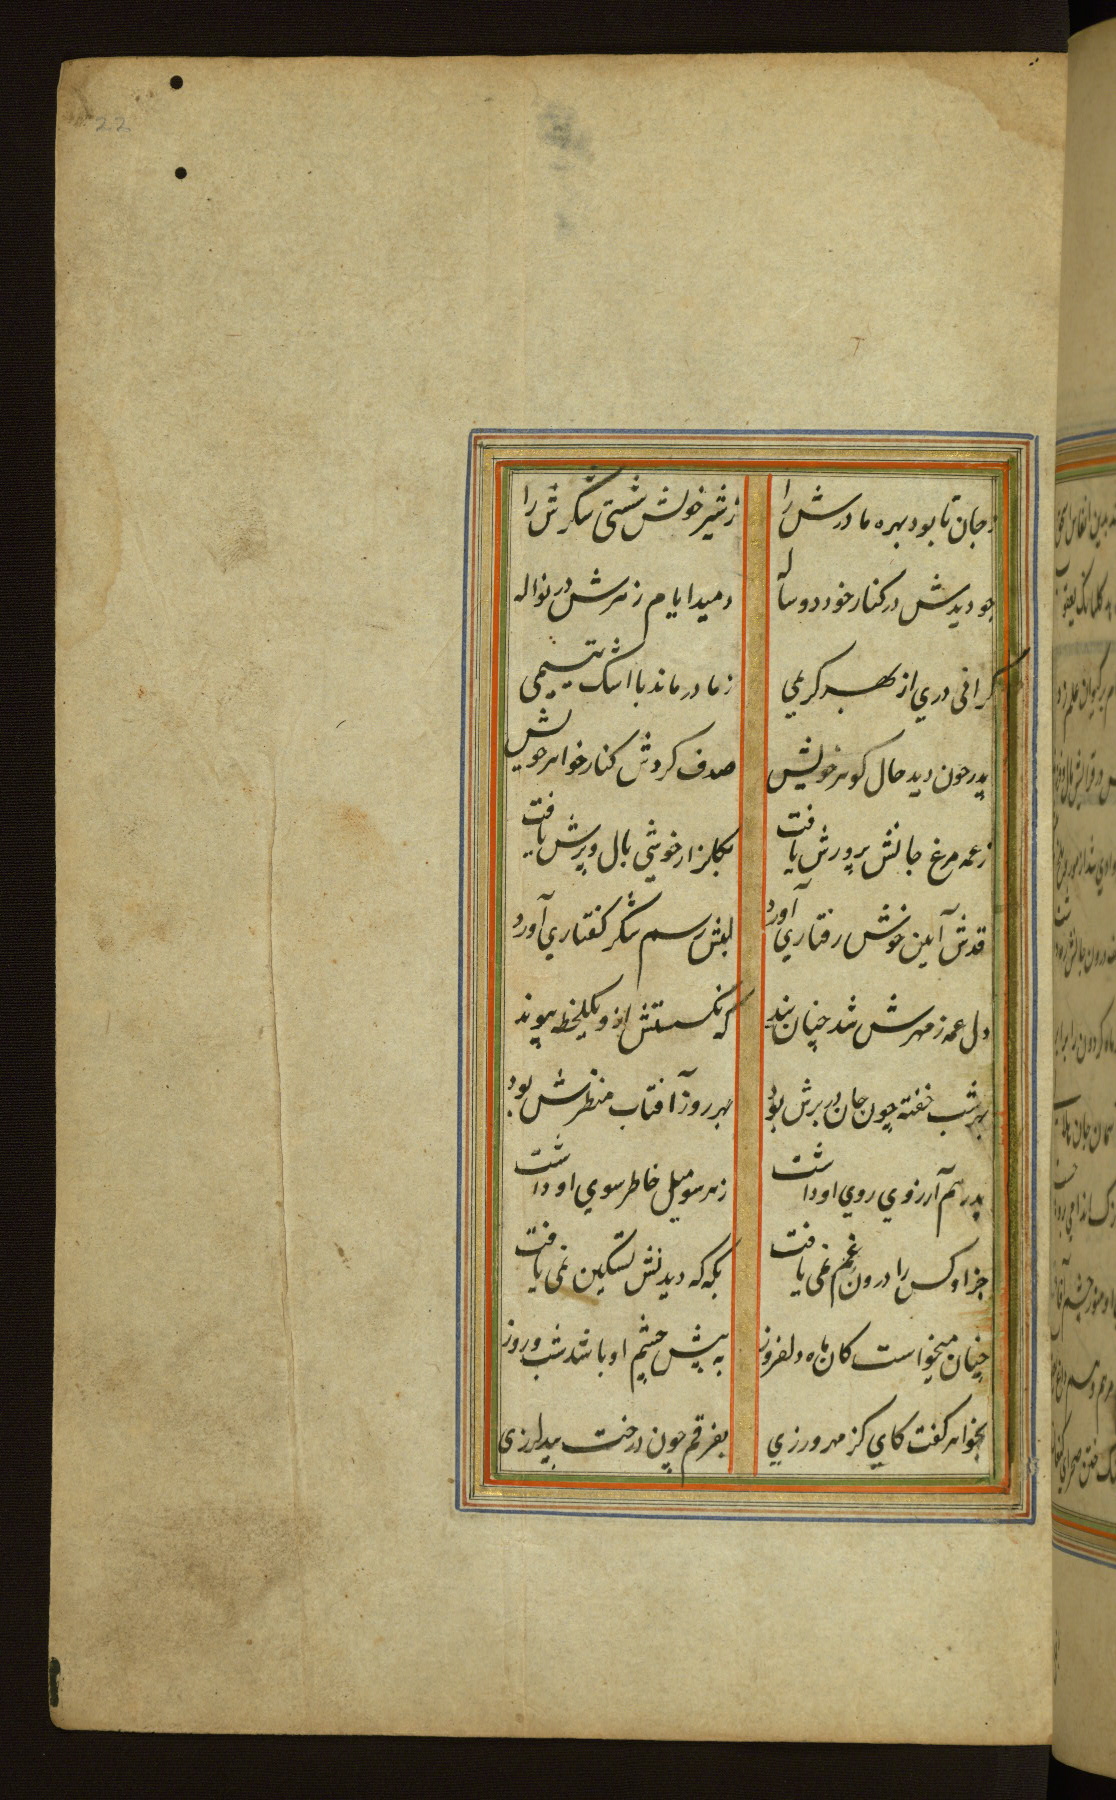 22
ز جان تا بود بهره مادرش را ز شیر خویش شستی شکرش را
چو دیدش در کنار خود دو ساله دمید ایام زهرش در نواله
گرامی دری از بحر کریمی ز مادر ماند با اشک یتیمی
پدر چون دید حال گوهر خویش صدف کردش کنار خواهر خویش
ز عمه مرغ جانش پرورش یافت بگلزار خوشی بال و پرش یافت
قدش آیین خوش رفتاری آورد لبش رسم شکر گفتاری آورد
دل عمه ز مهرش شد چنان بند که نگسستش ازو یکلحظه پیوند
بهر شب خفته چون جان در برش بود بهر روز آفتاب منظرش بود
پدر هم آرزوی روی او داشت ز هر سو میل خاطر سوی او داشت
جز او کس را درون غم نمی یافت بگه که دیدنش تسکین نمی یافت
چنان میخواست کان ماه دلفروز به پیش چشم او باشد شب و روز
بخواهر گفت کای کز مهرورزی بفرقم چون درخت بید لرزی